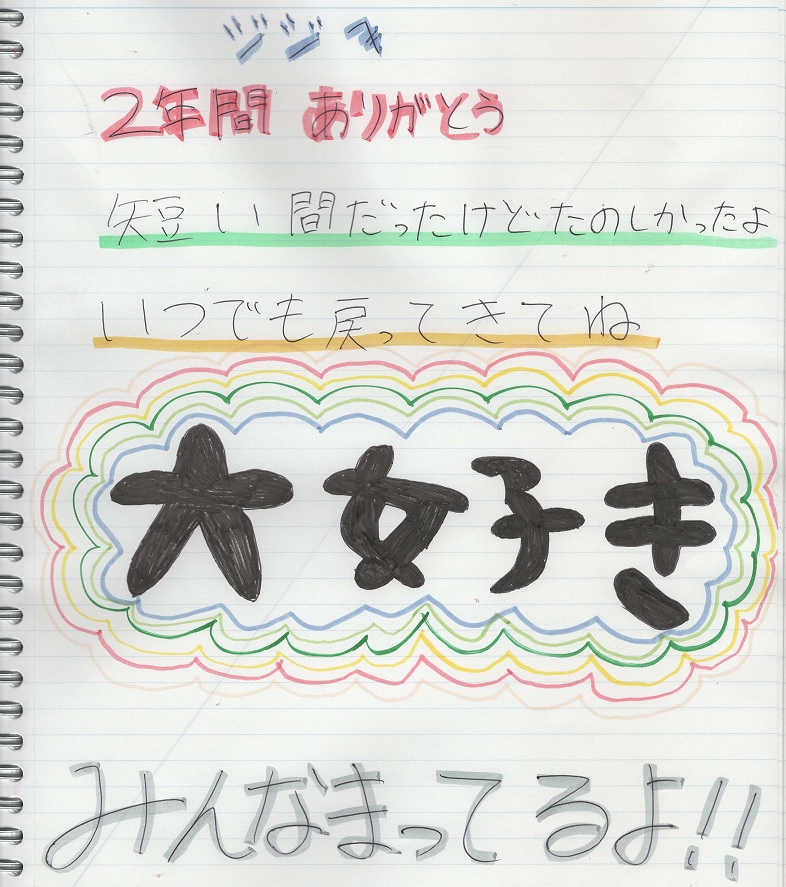 ジジへ
2年間 ありがとう
短い間だったけどたのしかったよ
いつでも戻ってきてね
大好き
みんなまってるよ!!